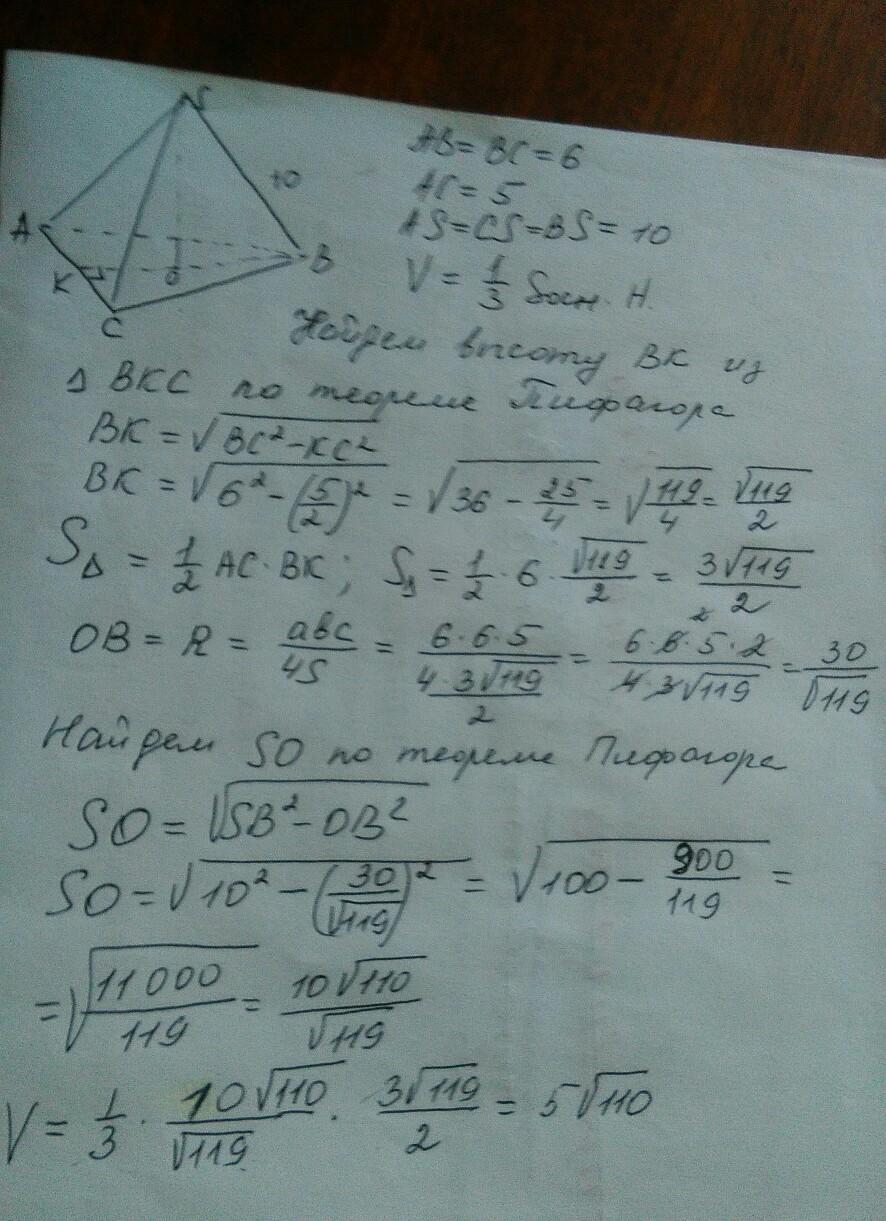 S
10
A
B
K
O
C
AB = BC = 6
AC = 5
AS = CS = BS = 10
V = 1/3 Sосн. H.
Найдем высоту BK из
Δ BKC по теореме Пифагора
BK = √(BC² - KC²)
BK = √(6² - (5/2)²) = √(36 - 25/4) = √(119/4) = √119/2
S△ = 1/2 AC · BK ; S△ = 1/2 · 6 · √119/2 = 3√119/2
OB = R = abc/4S = 6·6·5/(4·3√119/2) = 6·6·5·2/(4·3√119) = 30/√119
Найдем SO по теореме Пифагора
SO = √(SB² - OB²)
SO = √(10² - (30/√119)²) = √(100 - 900/119) =
= √(11000/119) = 10√110/√119
V = 1/3 · 10√110/√119 · 3√119/2 = 5√110